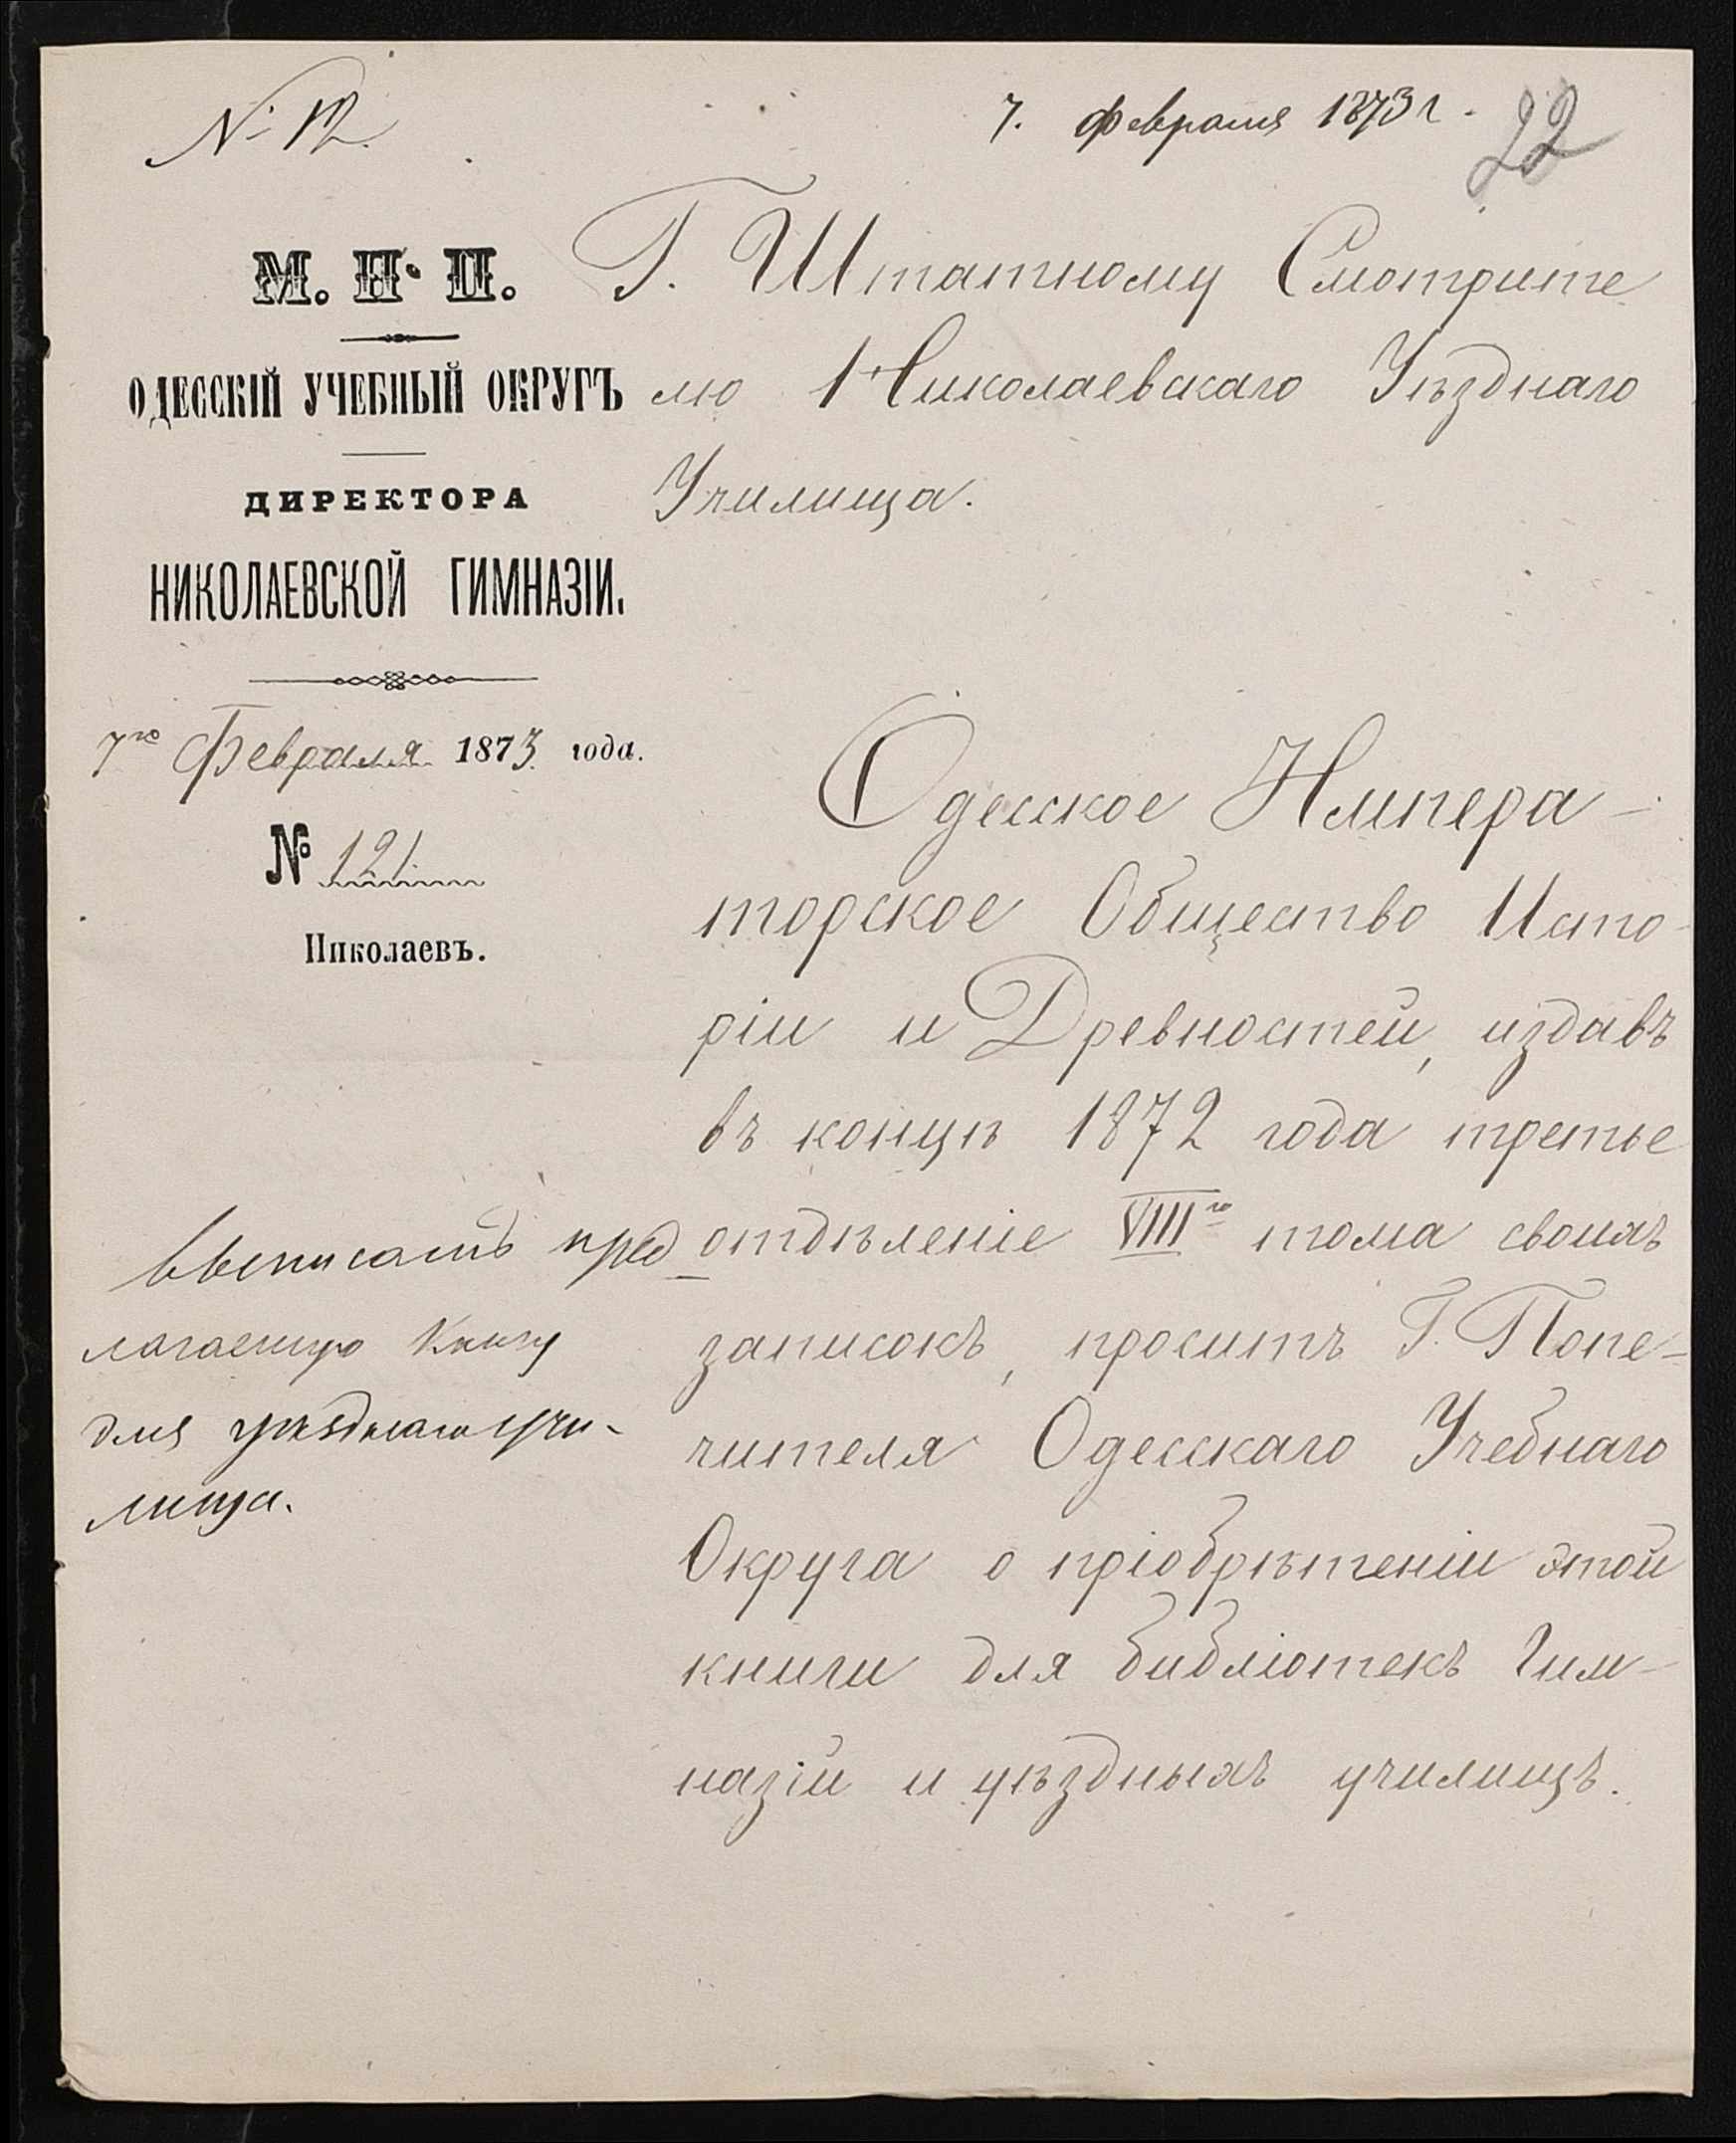 № 12.
7. Февраля 1873 г.
22
М. Н. П.
ОДЕССКІЙ УЧЕБНЫЙ ОКРУГЪ
ДИРЕКТОРА
НИКОЛАЕВСКОЙ ГИМНАЗІИ.
7го Февраля 1873 года.
№ 121.
Николаевъ.
Г. Штатному Смотрите
лю Николаевскаго Уѣзднаго
Училища.
Одесское Импера-
торское Общество Исто-
ріи и Древностей, издавъ
въ концѣ 1872 года третье
отдѣленіе VIIIго тома своихъ
записокъ, проситъ Г. Попе-
чителя Одесскаго Учебнаго
Округа о пріобрѣтеніи этой
книги для библіотекъ Гим-
назій и уѣздныхъ училищъ.
Выписать пред
лагаемую Книгу
для уѣзднаго учи-
лища.